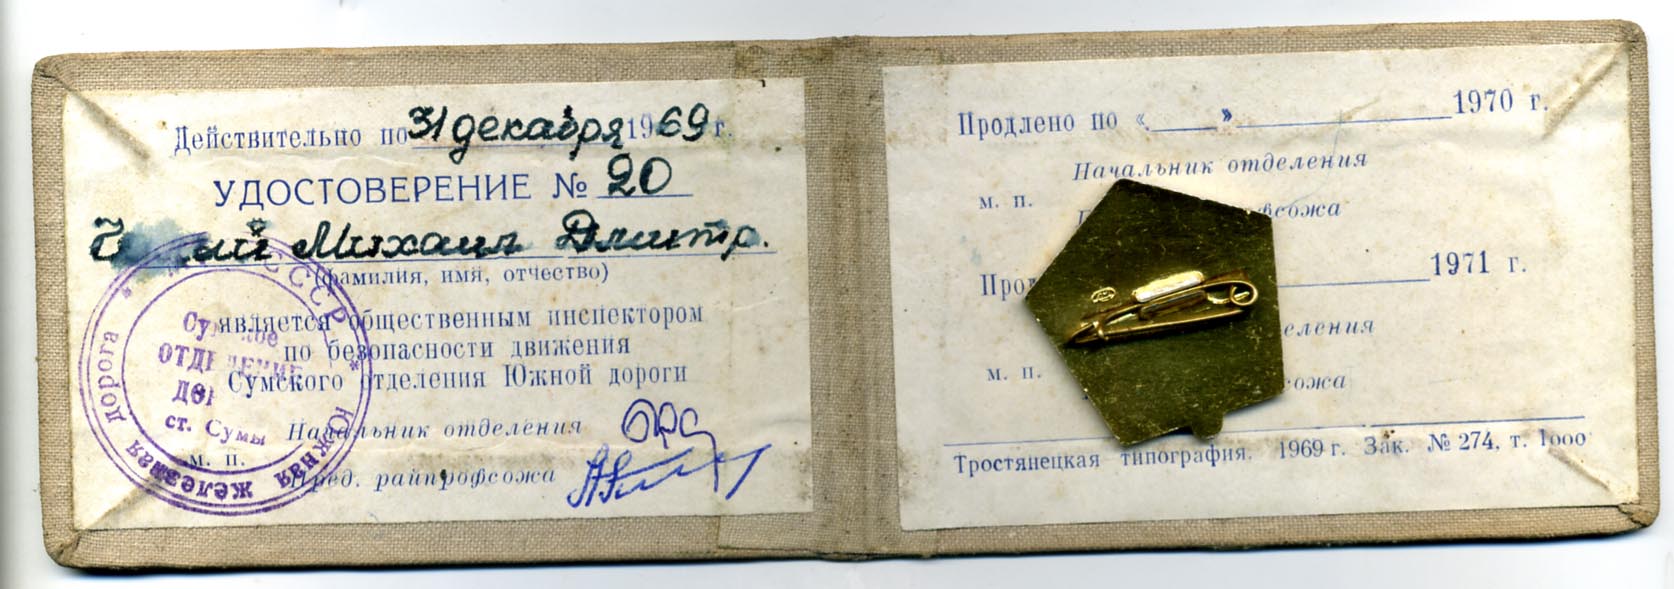 Действительно по 31 декабря 1969 г.
УДОСТОВЕРЕНИЕ № 20
Михаил Дмитр.
(фамилия, имя, отчество)
является общественным инспектором
по безопасности движения
Сумского отделения Южной дороги
Начальник отделения
м. п.
Пред. райпрофсожа
СССР * Южная железная дорога *
ОТДЕЛЕНИЕ
ст. Сумы
Продлено по « » 1970 г.
Начальник отделения
м. п.
1971 г.
м. п.
Тростянецкая типография. 1969 г. Зак. № 274, т. 1000